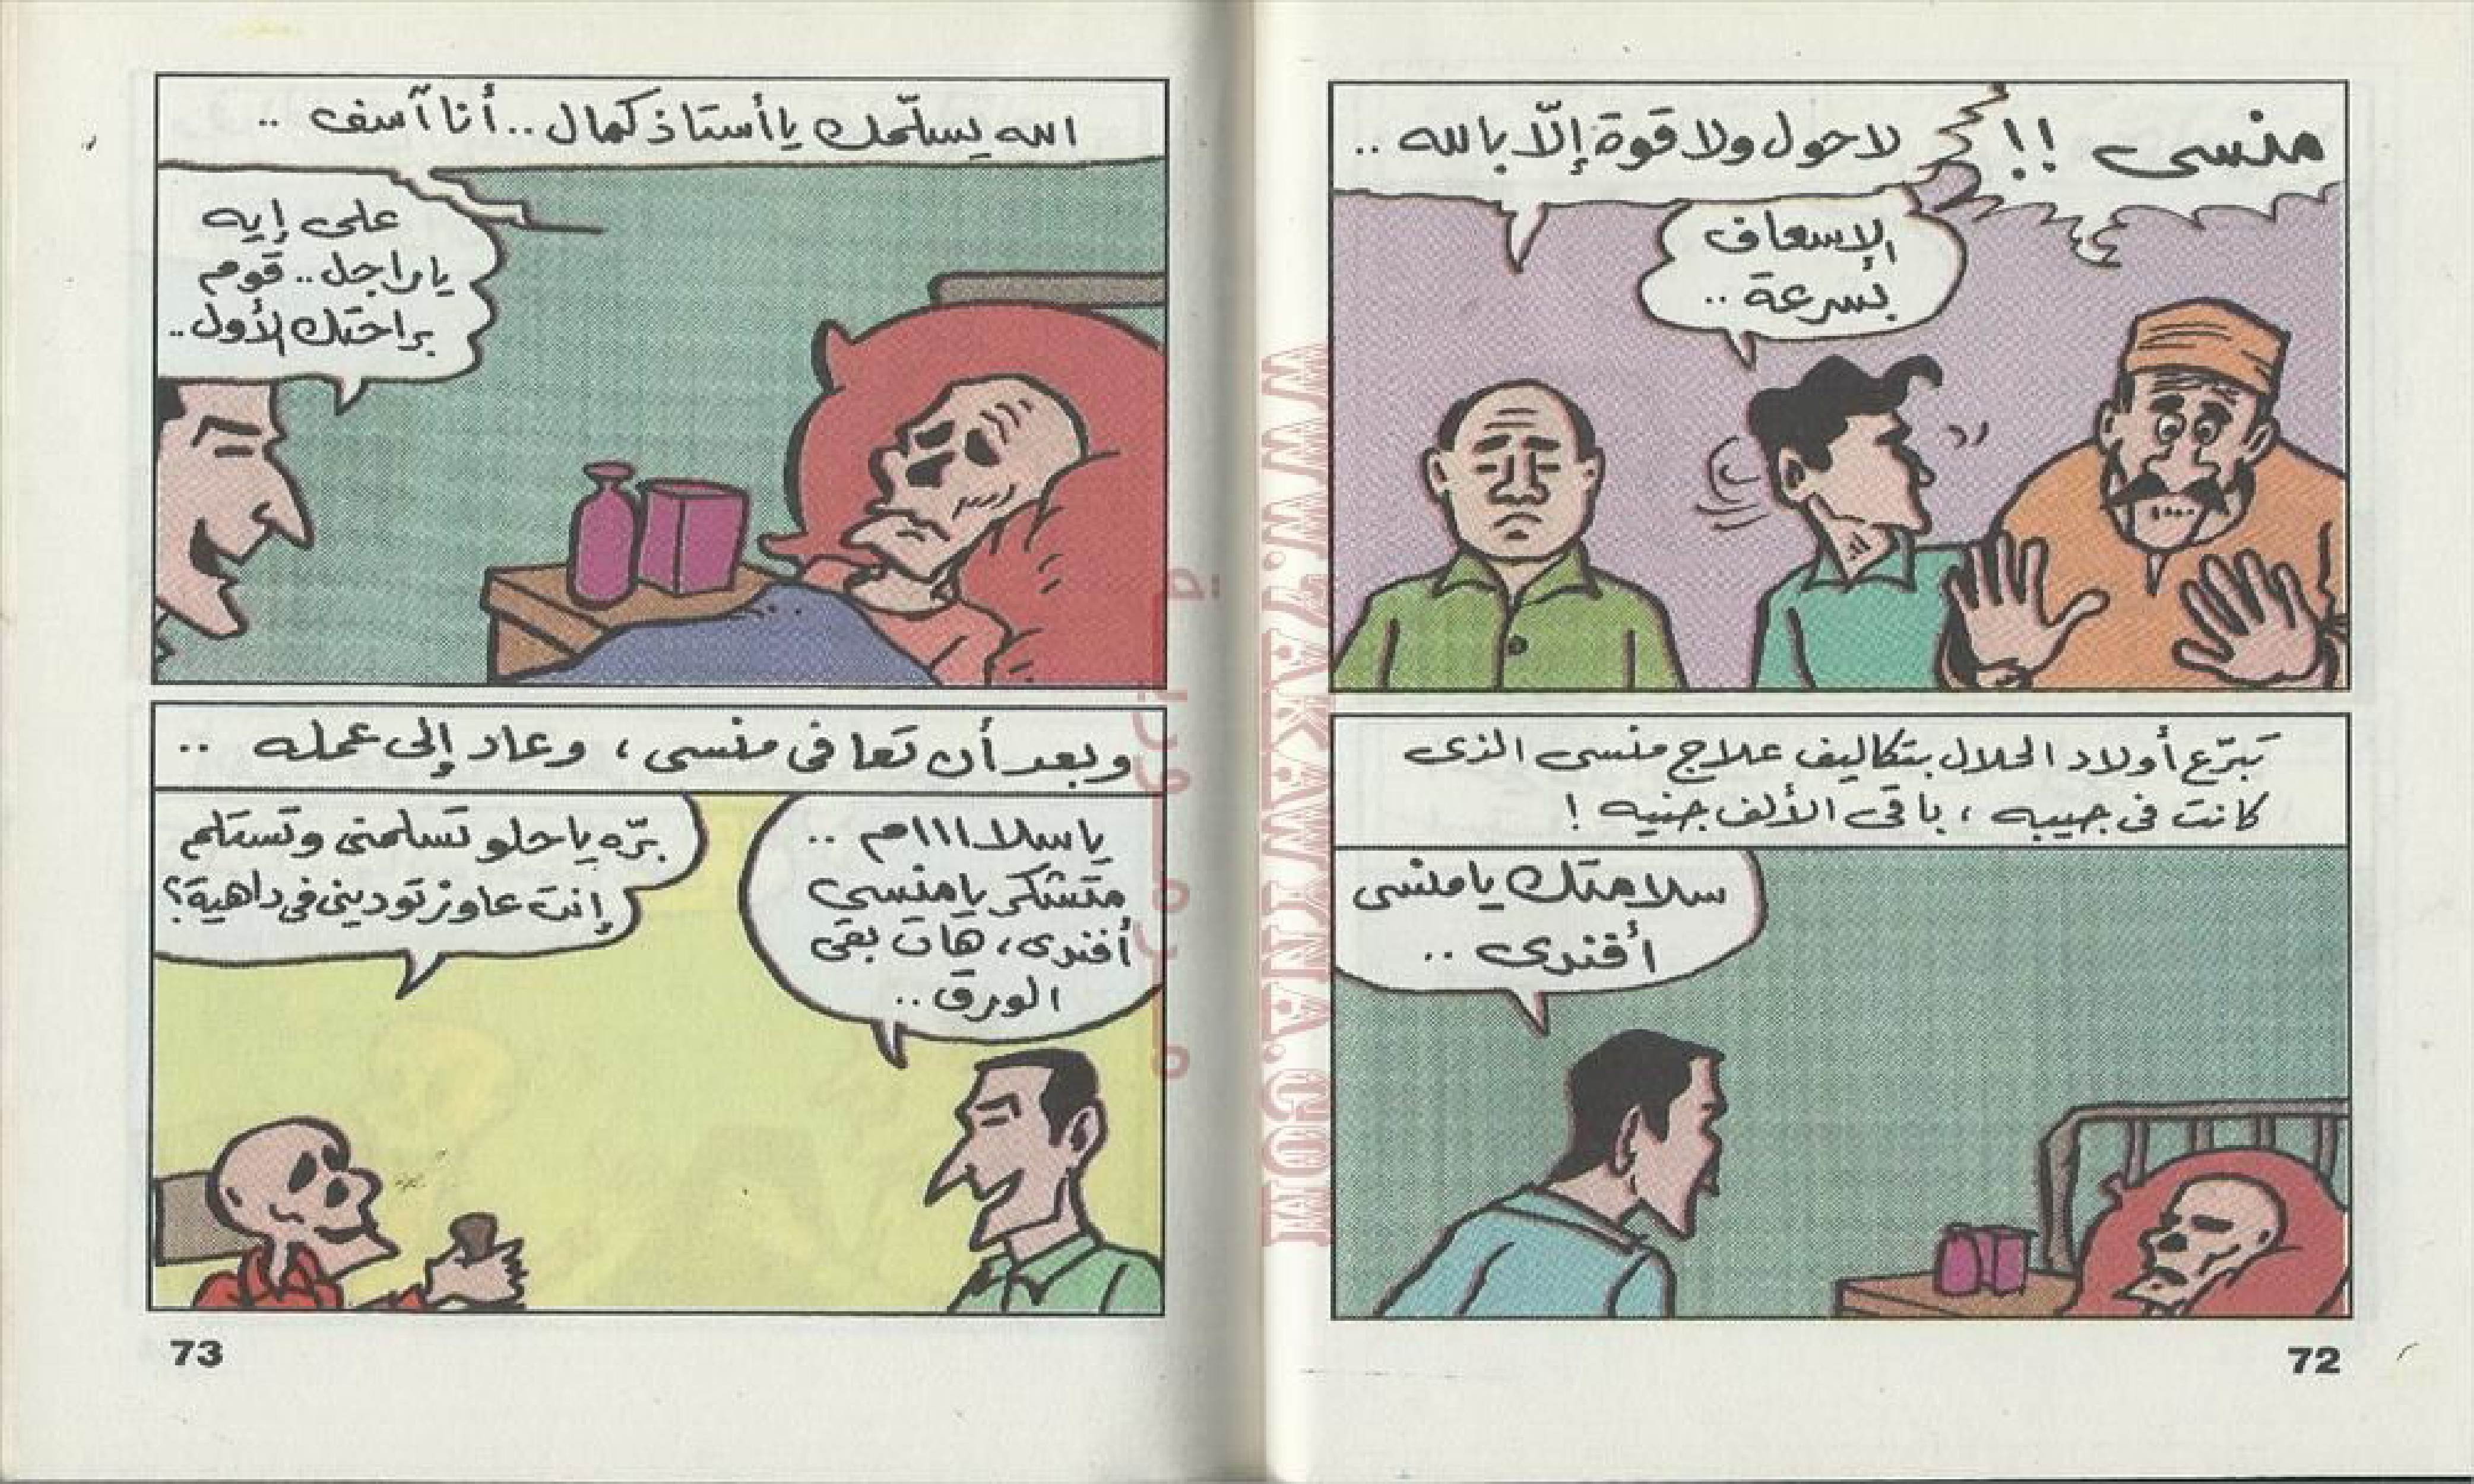 منسى !!
لا حول ولا قوة إلّا بالله ..
الإسعاف
بسرعة ..
تبرّع أولاد الحلال بتكاليف علاج منسى الذى
كانت فى جيبه ، باقى الألف جنيه !
سلامتك يا منسى
أفندى ..
72
الله يسلّمك يا أستاذ كمال .. أنا آسف ..
على إيه
يا راجل .. قوم
براحتك الأول ..
وبعد أن تعافى منسى ، وعاد إلى عمله ..
يا سلااااام ..
متشكر يا منسي
أفندى ، هات بقى
الورق ..
برّه يا حلو تسلمنى وتستلم
إنت عاوز تودينى فى داهية ؟
73
WWW.ZAKAWTNA.COM